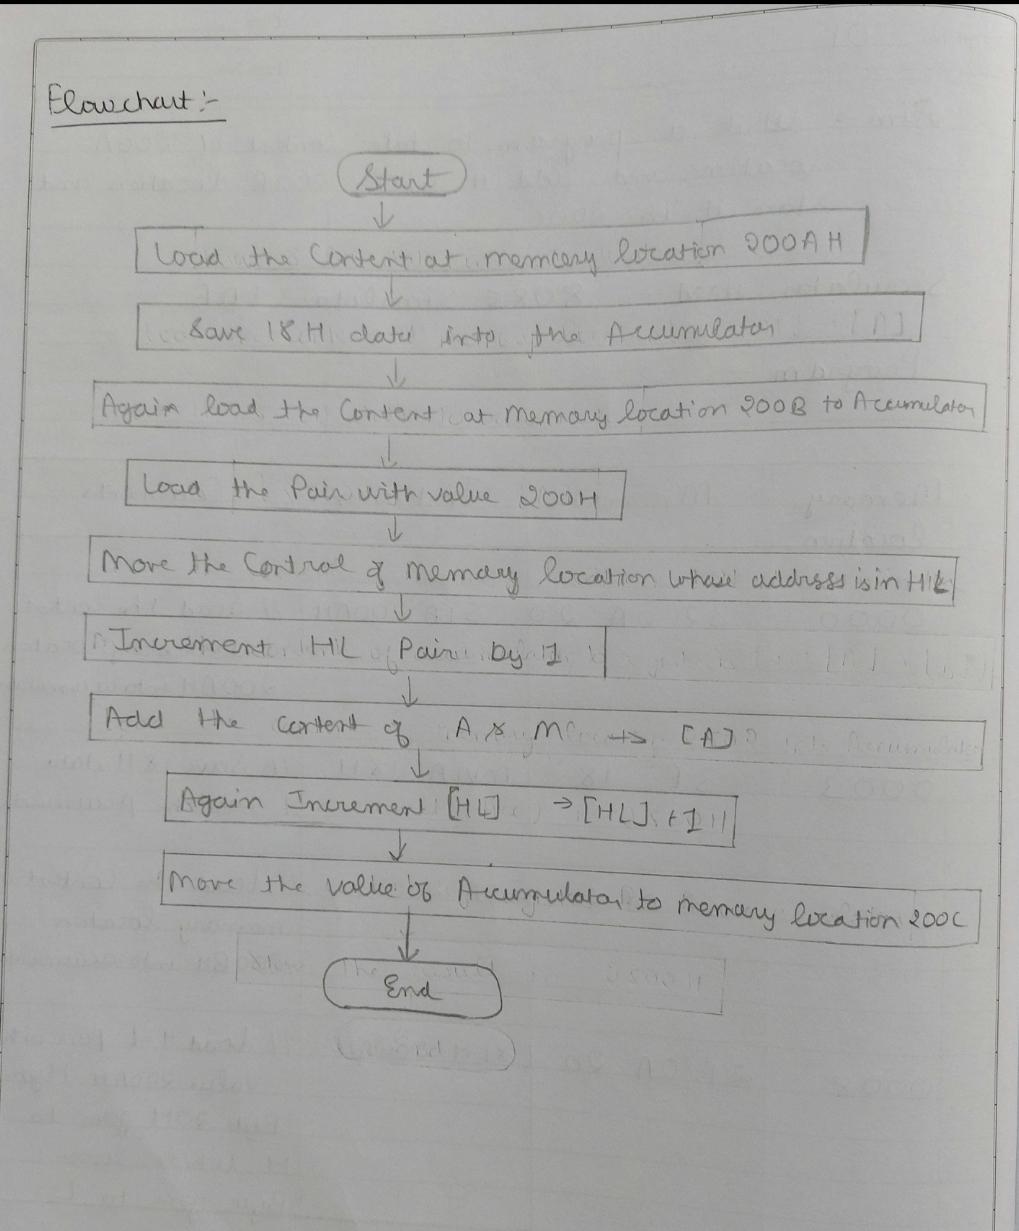 Flowchart :-
Start
Load the Content at memory location 200AH
Save 18H data into the Accumulator
Again load the Content at memory location 200B to Accumulator
Load the Pair with value 200H
Move the Control of memory location whose address is in HL
Increment HL Pair by 1
Add the content of A & M → [A]
Again Increment [HL] → [HL] + 1
Move the value of Accumulator to memory location 200C
End